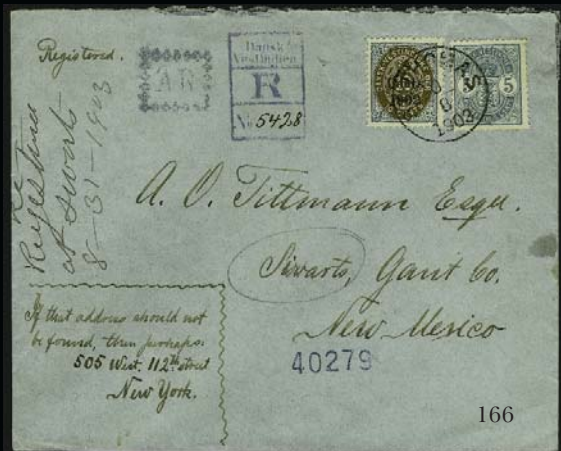 Registered.
AR
Dansk
Vestindien
R
No 5428
THOMAS
1902
1903
5
Registered
at Swarts
8-31-1903
A. O. Tittmann Esqu.
Swarts, Gant Co.
New Mexico
If that address should not
be found, then perhaps:
505 West. 112th street
New York.
40279
166